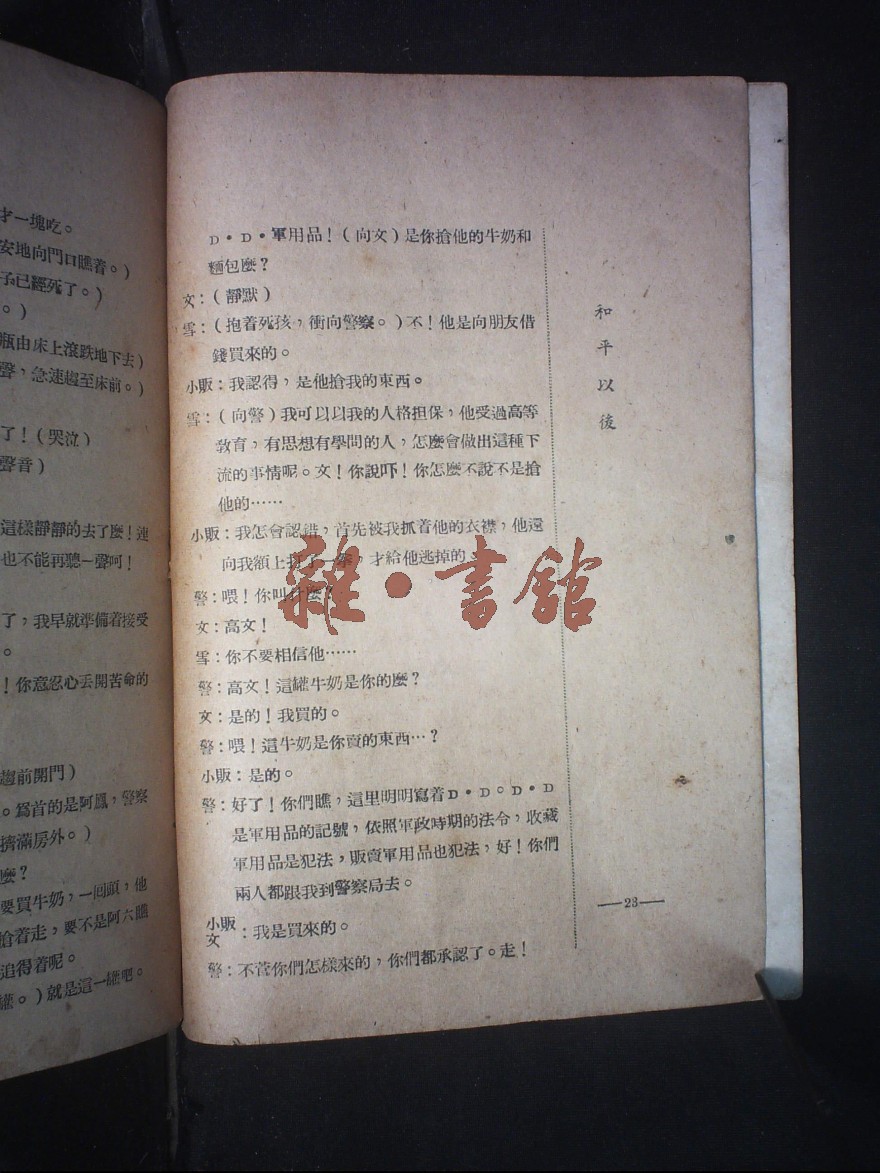 才一塊吃。
安地向門口瞧着。)
子已經死了。)
。)
瓶由床上滾跌地下去)
聲,急速趨至床前。)
了!(哭泣)
聲音)
這樣靜靜的去了麼!連
也不能再聽一聲呵!
了,我早就準備着接受
。
!你意忍心丢開苦命的
趨前開門)
。爲首的是阿鳳,警察
擠滿房外。)
麼?
要買牛奶,一回頭,他
搶着走,要不是阿六瞧
追得着呢。
罐。)就是這一罐吧。
D·D·軍用品!(向文)是你搶他的牛奶和
麵包麼?
文:(靜默)
雪:(抱着死孩,衝向警察。)不!他是向朋友借
錢買來的。
小販:我認得,是他搶我的東西。
雪:(向警)我可以以我的人格担保,他受過高等
敎育,有思想有學問的人,怎麼會做出這種下
流的事情呢。文!你說吓!你怎麼不說不是搶
他的……
小販:我怎會認錯,首先被我抓着他的衣襟,他還
向我額上打了一拳,才給他逃掉的。
警:喂!你叫什麼?
文:高文!
雪:你不要相信他……
警:高文!這罐牛奶是你的麼?
文:是的!我買的。
警:喂!這牛奶是你賣的東西…?
小販:是的。
警:好了!你們瞧,這里明明寫着D·D。D·D
是軍用品的記號,依照軍政時期的法令,收藏
軍用品是犯法,販賣軍用品也犯法,好!你們
兩人都跟我到警察局去。
小販
文:我是買來的。
警:不菅你們怎樣來的,你們都承認了。走!
和平以後
—23—
雜·書館